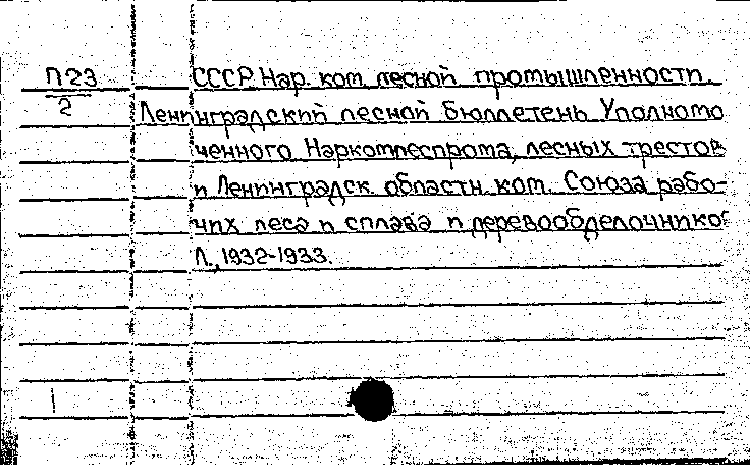 П23
2
СССР. Нар. ком. лесной промышленности.
Ленинградский лесной бюллетень Уполномо
ченного Наркомлеспрома, лесных трестов
и Ленинградск. области. ком. Союза рабо-
чих леса и сплава и деревообделочников
Л., 1932-1933.